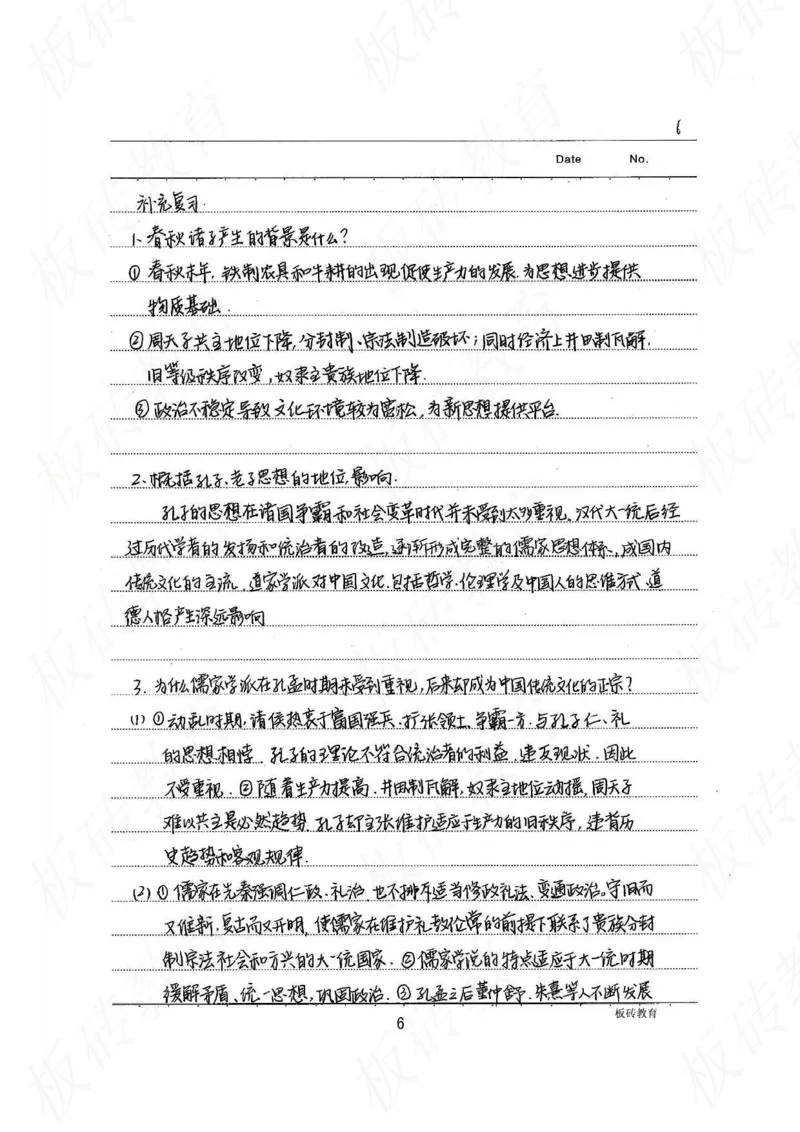 6
Date No.
补充复习.
1、春秋诸子产生的背景是什么?
① 春秋末年,铁制农具和牛耕的出现,促使生产力的发展,为思想进步提供
物质基础.
②周天子共主地位下降,分封制、宗法制遭破坏;同时经济上井田制瓦解.
旧等级秩序改变,奴隶主贵族地位下降.
③政治不稳定导致文化环境较为宽松,为新思想提供平台.
2、概括孔子、老子思想的地位,影响.
孔子的思想在诸国争霸和社会变革时代并未受到太多重视,汉代大一统后经
过历代学者的发扬和统治者的改造,逐渐形成完整的儒家思想体系,成国内
传统文化的主流.道家学派对中国文化.包括哲学.伦理学及中国人的思维方式.道
德人格产生深远影响
3. 为什么儒家学派在孔孟时期未受到重视,后来却成为中国传统文化的正宗?
(1) ①动乱时期.诸侯热衷于富国强兵.扩张领土.争霸一方.与孔子仁、礼
的思想相悖.孔子的理论不符合统治者的利益.违反现状.因此
不受重视.②随着生产力提高.井田制瓦解,奴隶主地位动摇,周天子
难以共主是必然趋势.孔子却主张维护适应于生产力的旧秩序,违背历
史趋势和客观规律.
(2) ①儒家在先秦强调仁政、礼治.也不排斥适当修政礼法、变通政治。守旧而
又维新,复古而又开明.使儒家在维护礼教伦常的前提下联系了贵族分封
制宗法社会和方兴的大一统国家.②儒家学说的特点适应于大一统时期
缓解矛盾、统一思想、巩固政治.③孔孟之后董仲舒.朱熹等人不断发展
板砖教育
6